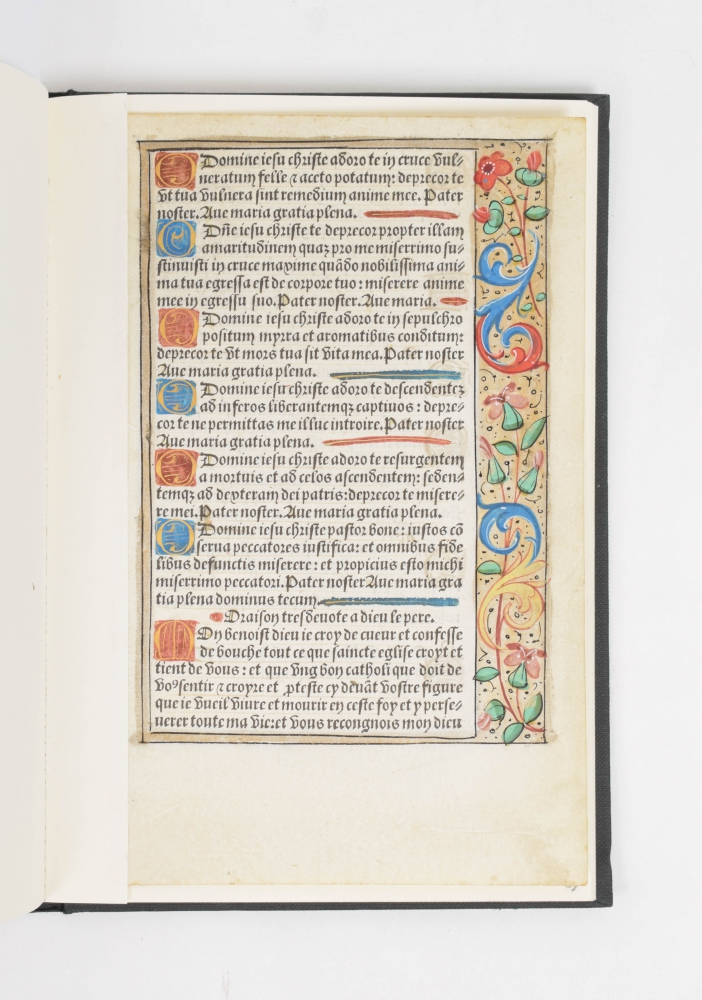 O Domine iesu christe adoro te in cruce vul⸗
neratum felle ⁊ aceto potatum: deprecor te
vt tua vulnera sint remedium anime mee. Pater
noster. Aue maria gratia plena.
O Dñe iesu christe te deprecor propter illam
amaritudinem quaꝫ pro me miserrimo su⸗
stinuisti in cruce maxime quādo nobilissima ani⸗
ma tua egressa est de corpore tuo: miserere anime
mee in egressu suo. Pater noster. Aue maria.
O Domine iesu christe adoro te in sepulchro
positum myrra et aromatibus conditum:
deprecor te vt mors tua sit vita mea. Pater noster
Aue maria gratia plena.
O Domine iesu christe adoro te descendenteꝫ
ad inferos liberantemqꝫ captiuos: depre⸗
cor te ne permittas me illuc introire. Pater noster
Aue maria gratia plena.
O Domine iesu christe adoro te resurgentem
a mortuis et ad celos ascendentem: seden⸗
temqꝫ ad dexteram dei patris: deprecor te misere⸗
re mei. Pater noster. Aue maria gratia plena.
O Domine iesu christe pastor bone: iustos cō
serua peccatores iustifica: et omnibus fide
libus defunctis miserere: et propicius esto michi
miserrimo peccatori. Pater noster Aue maria gra
tia plena dominus tecum.
Oraison tresdeuote a dieu le pere.
Mon benoist dieu ie croy de cueur et confesse
de bouche tout ce que saincte eglise croyt et
tient de vous: et que vng bon catholique doit de
voꝰ sentir ⁊ croyre et ꝓteste cy deuāt vostre figure
que ie vueil viure et mourir en ceste foy et y perse⸗
uerer toute ma vie: et vous recongnois mon dieu